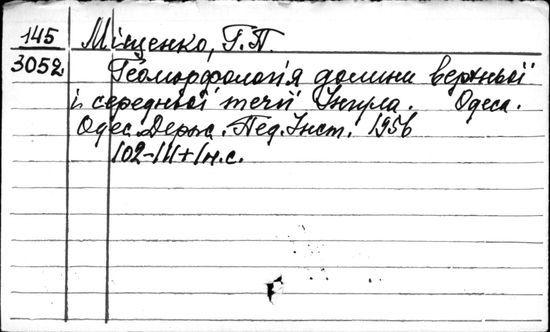 145
3052
Міщенко, Г.П.
Геоморфологія долини верхньої
і середньої течії Інгула. Одеса.
Одес. Держ. Пед. Інст. 1956
102-111+1н.с.